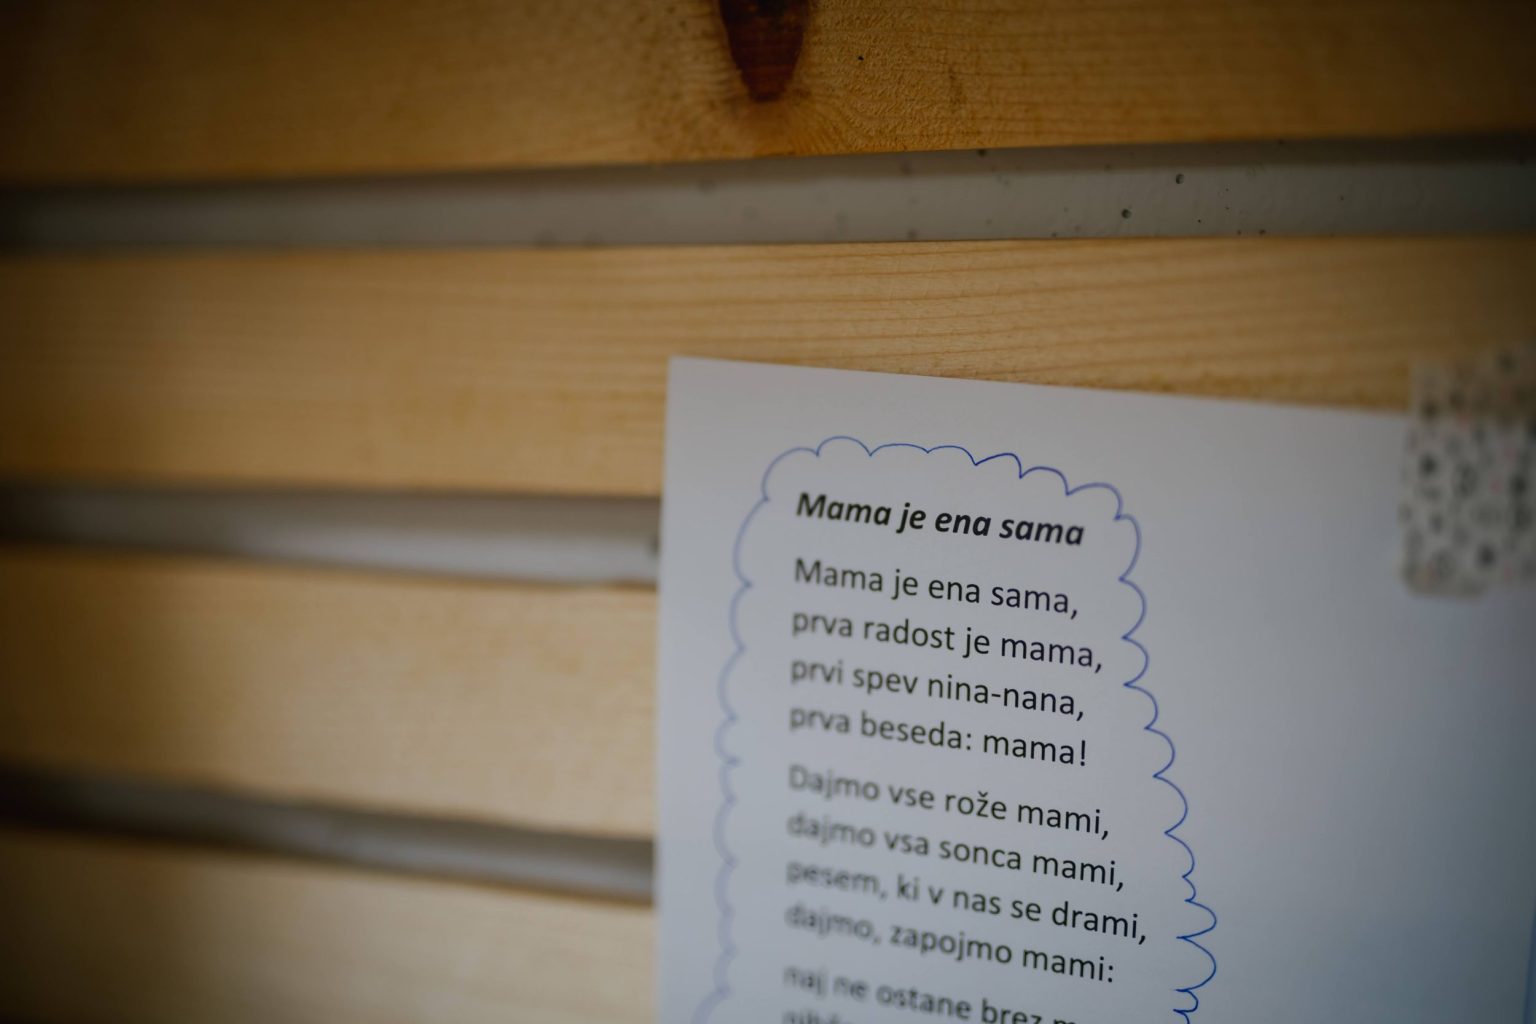 Mama je ena sama
Mama je ena sama,
prva radost je mama,
prvi spev nina-nana,
prva beseda: mama!
Dajmo vse rože mami,
dajmo vsa sonca mami,
pesem, ki v nas se drami,
dajmo, zapojmo mami:
naj ne ostane brez